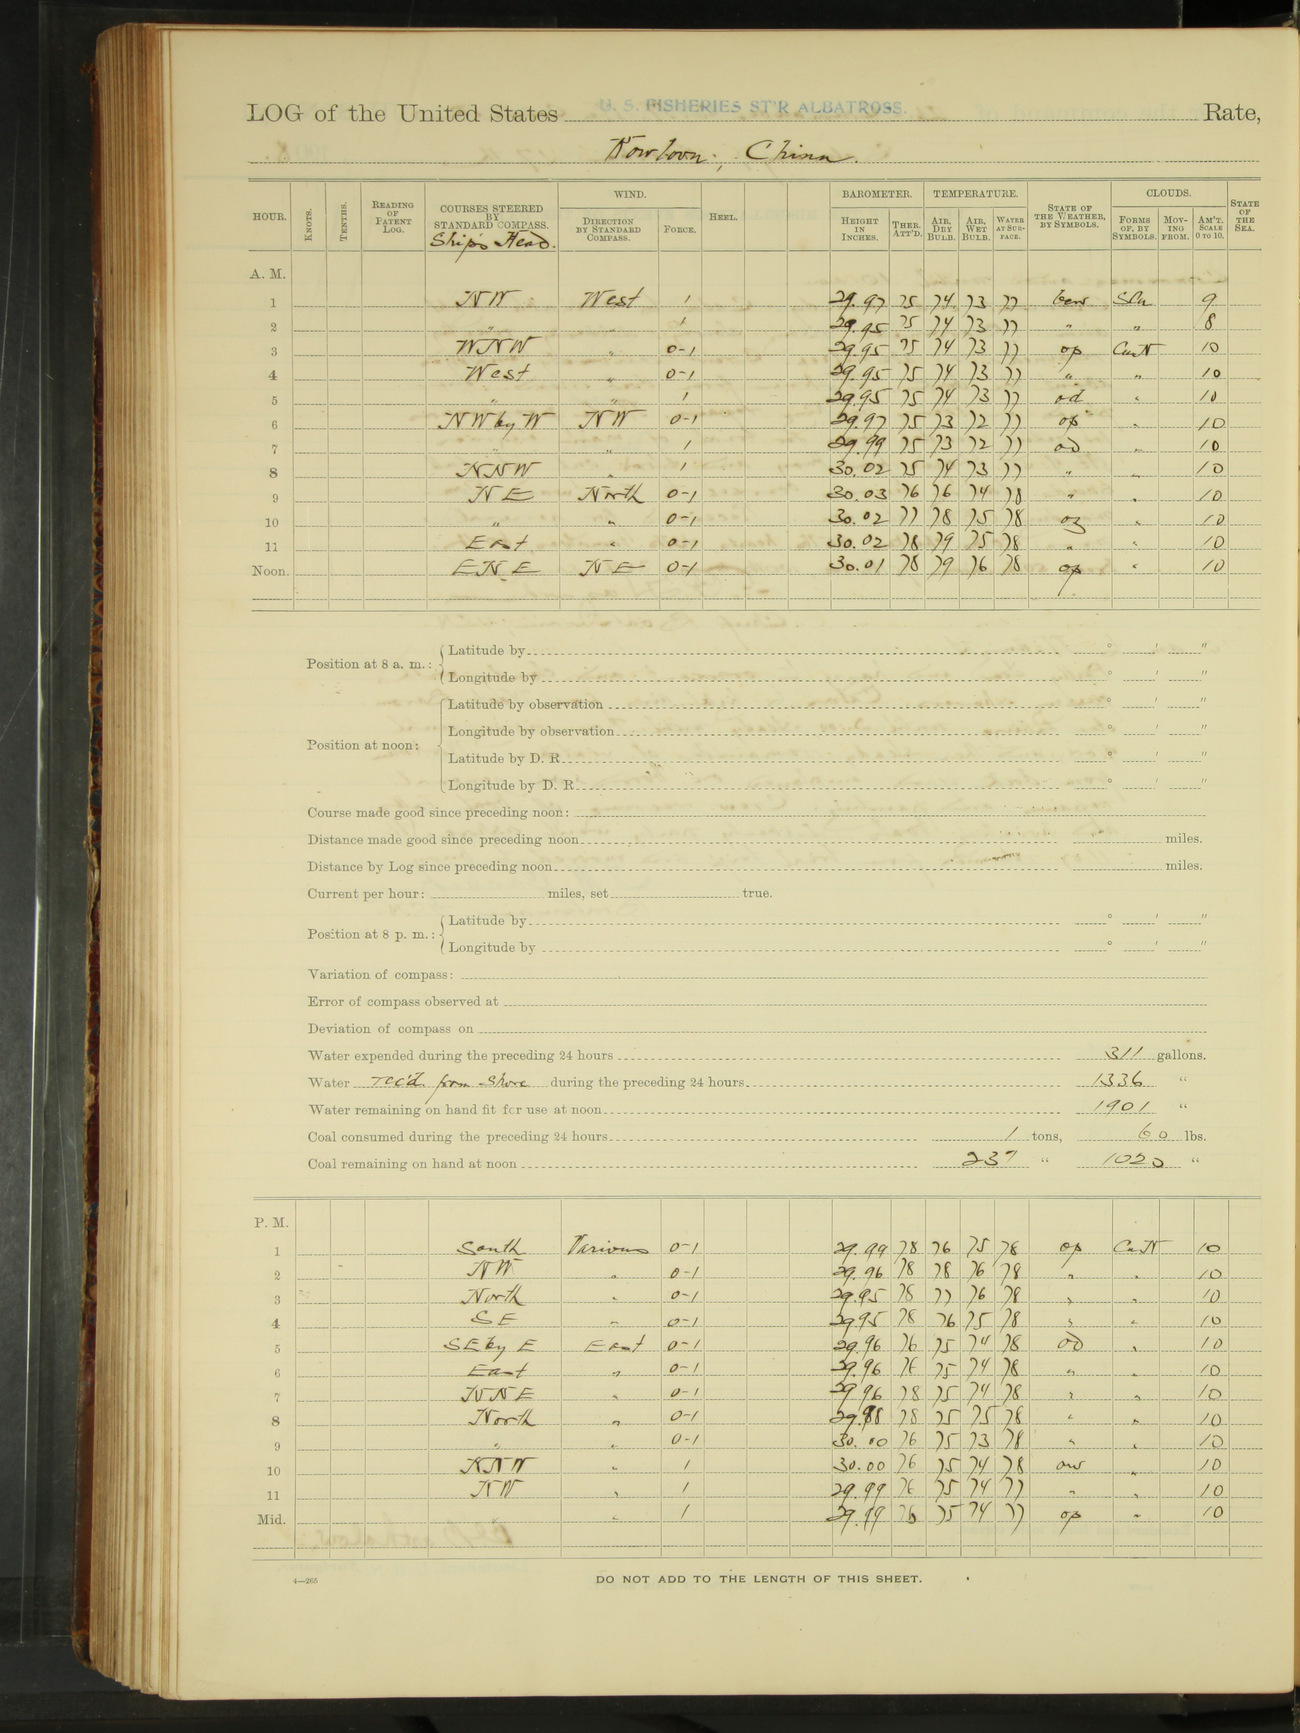 LOG of the United States U. S. FISHERIES ST'R ALBATROSS. Rate,
Kowloon, China.
HOUR. KNOTS. TENTHS. READING OF PATENT LOG. COURSES STEERED BY STANDARD COMPASS. Ship's Head. WIND. DIRECTION BY STANDARD COMPASS. FORCE. HEEL. BAROMETER. HEIGHT IN INCHES. THER. ATT'D. TEMPERATURE. AIR, DRY BULB. AIR, WET BULB. WATER AT SURFACE. STATE OF THE WEATHER, BY SYMBOLS. CLOUDS. FORMS OF, BY SYMBOLS. MOVING FROM. AM'T. SCALE 0 TO 10. STATE OF THE SEA.
A. M.
1 NW West 1 29.97 75 74 73 77 9
2 " " 1 29.95 75 74 73 77 " " 8
3 WNW " 0-1 29.95 75 74 73 77 op CuN 10
4 West " 0-1 29.95 75 74 73 77 " " 10
5 " " 1 29.95 75 74 73 77 od " 10
6 NW by W NW 0-1 29.97 75 73 72 77 op " 10
7 " " 1 29.99 75 73 72 77 od " 10
8 NNW " 1 30.02 75 74 73 77 " " 10
9 NE North 0-1 30.03 76 76 74 78 " " 10
10 " " 0-1 30.02 77 78 75 78 oz " 10
11 East " 0-1 30.02 78 79 75 78 " " 10
Noon. ENE NE 0-1 30.01 78 79 76 78 op " 10
Position at 8 a. m.: Latitude by ° ′ ″
Longitude by ° ′ ″
Position at noon: Latitude by observation ° ′ ″
Longitude by observation ° ′ ″
Latitude by D. R. ° ′ ″
Longitude by D. R. ° ′ ″
Course made good since preceding noon:
Distance made good since preceding noon miles.
Distance by Log since preceding noon miles.
Current per hour: miles, set true.
Position at 8 p. m.: Latitude by ° ′ ″
Longitude by ° ′ ″
Variation of compass:
Error of compass observed at
Deviation of compass on
Water expended during the preceding 24 hours 311 gallons.
Water rec'd. from shore during the preceding 24 hours 1336 "
Water remaining on hand fit for use at noon 1901 "
Coal consumed during the preceding 24 hours 1 tons, 60 lbs.
Coal remaining on hand at noon 237 " 1020 "
P. M.
1 South Various 0-1 29.99 78 76 75 78 op CuN 10
2 NW " 0-1 29.96 78 78 76 78 " " 10
3 North " 0-1 29.95 78 77 76 78 " " 10
4 SE " 0-1 29.95 78 76 75 78 " " 10
5 SE by E East 0-1 29.96 76 75 74 78 od " 10
6 East " 0-1 29.96 76 75 74 78 " " 10
7 NNE " 0-1 29.96 78 75 74 78 " " 10
8 North " 0-1 78 75 75 78 " " 10
9 " " 0-1 30.00 76 75 73 78 " " 10
10 NNW " 1 30.00 76 75 74 78 " 10
11 NW " 1 29.99 76 75 74 77 " " 10
Mid. " 1 29.99 76 75 74 77 op " 10
4—265
DO NOT ADD TO THE LENGTH OF THIS SHEET.